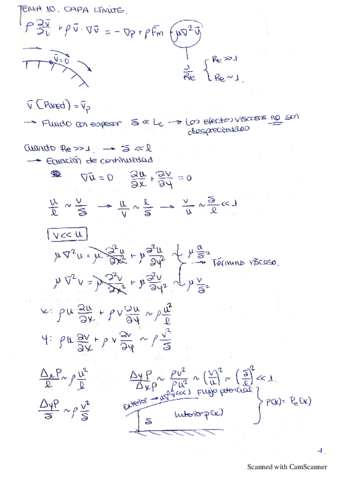 TEMA 10. CAPA LÍMITE.
ρ ∂v̄/∂t + ρ v̄ · ∇v̄ = −∇p + ρ f̄m + μ∇²v̄
v̄=0
1/Re { Re>>1
Re~1.
v̄ (Pared) = v̄p
→ Fluido con espesor δ << Lc → Los efectos viscosos no son
despreciables
Cuando Re>>1. → δ << l
→ Ecuación de continuidad
∇ū = 0 ∂u/∂x + ∂v/∂y = 0
u/l ~ v/δ → u/v ~ l/δ → v/u ~ δ/l << 1
v << u
μ∇²u = μ ∂²u/∂x² + μ ∂²u/∂y² ~ μ u/δ²
→ Término viscoso.
μ∇²v = μ ∂²v/∂x² + μ ∂²v/∂y² ~ μ v/δ²
x: ρu ∂u/∂x + ρv ∂u/∂y ~ ρ u²/l
y: ρu ∂v/∂x + ρv ∂v/∂y ~ ρ v²/δ
ΔxP/l ~ ρ u²/l ΔyP/ΔxP ~ ρv²/ρu² ~ (v/u)² ~ (δ/l)² << 1.
ΔyP/δ ~ ρ v²/δ
Exterior → Flujo potencial
δ Interior p(x) } p(x) = Pe(x)
-1-
Scanned with CamScanner